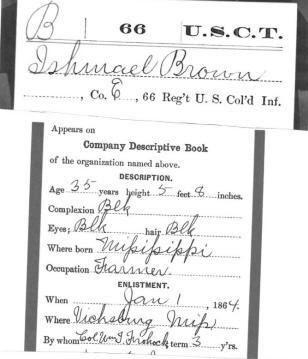 B 66 U.S.C.T.
Ishmael Brown
, Co. E, 66 Reg't U. S. Col'd Inf.
Appears on
Company Descriptive Book
of the organization named above.
DESCRIPTION.
Age 35 years height 5 feet 8 inches.
Complexion Blk
Eyes; Blk hair Blk
Where born Missisippi
Occupation Farmer
ENLISTMENT.
When Jan 1, 1864.
Where Vicksburg Miss
By whom Col Wm T. term 3 y'rs.